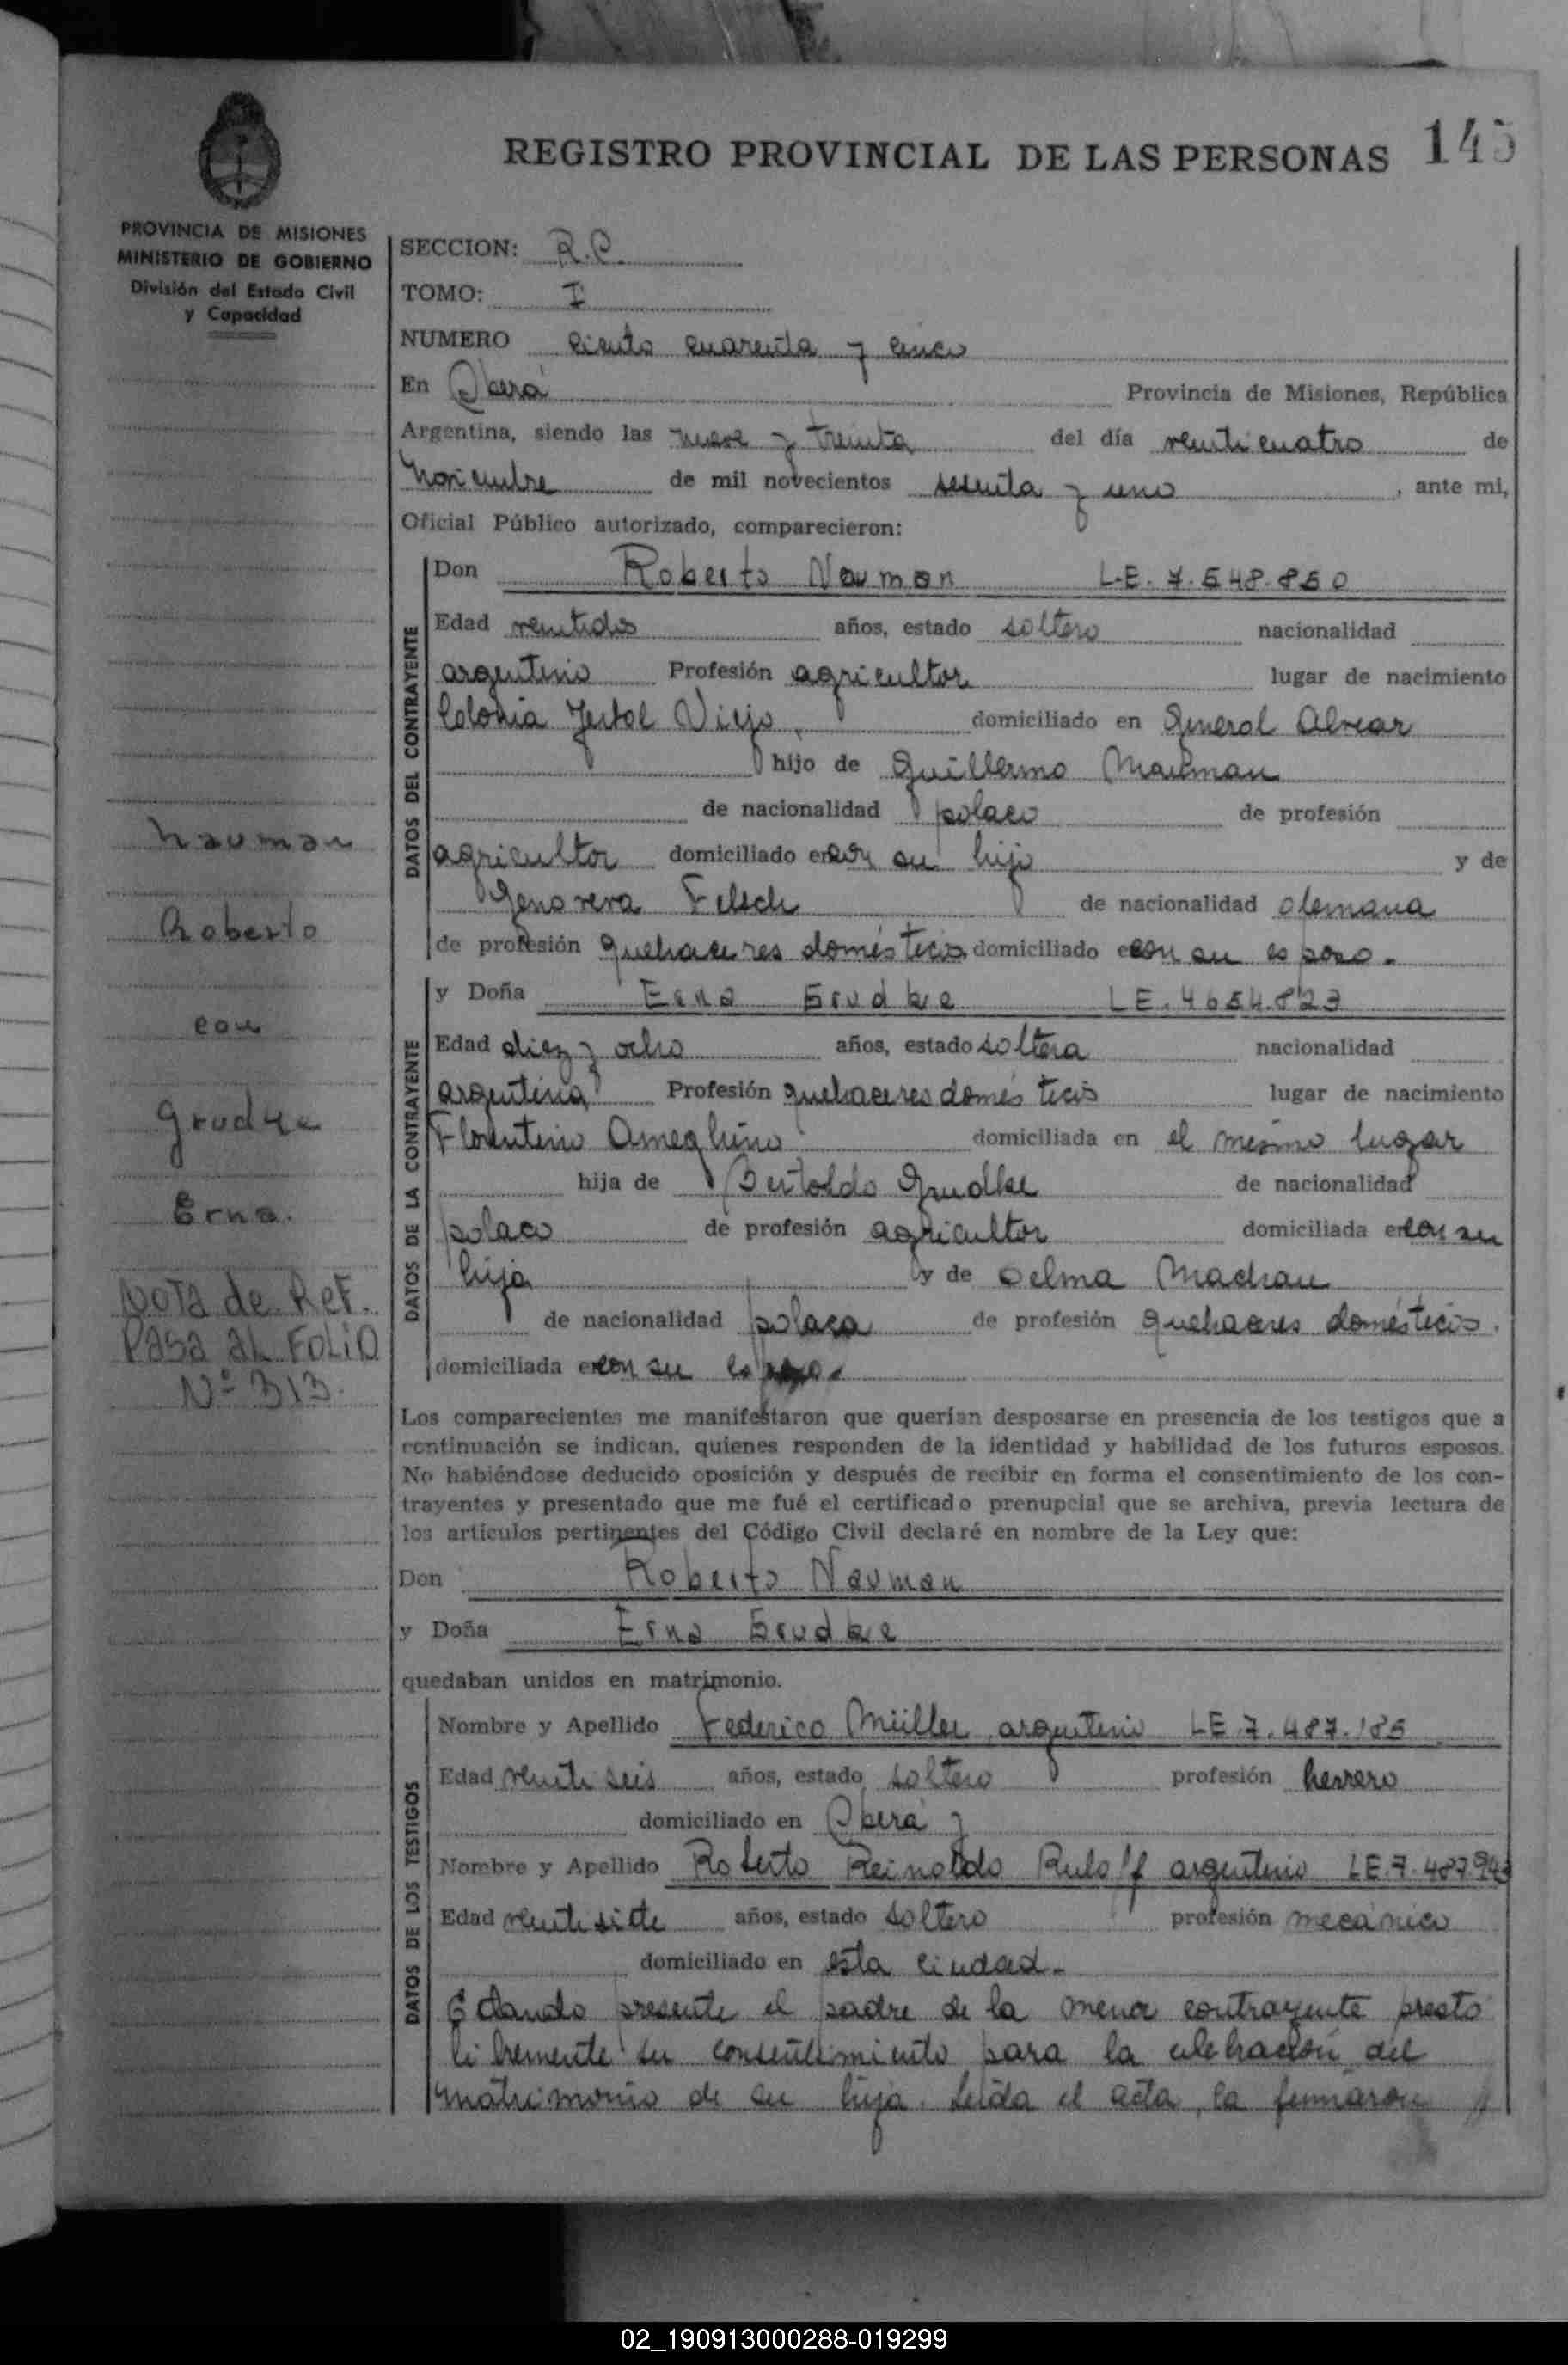 REGISTRO PROVINCIAL DE LAS PERSONAS 145
PROVINCIA DE MISIONES
MINISTERIO DE GOBIERNO
División del Estado Civil
y Capacidad
SECCION: R.C.
TOMO: I
NUMERO ciento cuarenta y cinco
En Oberá Provincia de Misiones, República
Argentina, siendo las nueve y treinta del día venticuatro de
noviembre de mil novecientos sesenta y uno, ante mi,
Oficial Público autorizado, comparecieron:
DATOS DEL CONTRAYENTE
Don Roberto Nauman L.E. 7.548.850
Edad ventidos años, estado soltero nacionalidad
argentino Profesión agricultor lugar de nacimiento
Colonia Yerbal Viejo, domiciliado en General Alvear
hijo de Guillermo Nauman
de nacionalidad polaco de profesión
agricultor domiciliado en con su hijo y de
Genoveva Felsch de nacionalidad alemana
de profesión quehaceres domésticos domiciliado con su esposo.
DATOS DE LA CONTRAYENTE
y Doña Erna Grudke L.E. 4654.823
Edad diez y ocho años, estado soltera nacionalidad
argentina Profesión quehaceres domésticos lugar de nacimiento
Florentino Ameghino domiciliada en el mismo lugar
hija de Bertoldo Grudke de nacionalidad
polaco de profesión agricultor domiciliada en con su
hija y de Selma
de nacionalidad polaca de profesión quehaceres domésticos.
domiciliada en con su esposo.
Los comparecientes me manifestaron que querían desposarse en presencia de los testigos que a
continuación se indican, quienes responden de la identidad y habilidad de los futuros esposos.
No habiéndose deducido oposición y después de recibir en forma el consentimiento de los con-
trayentes y presentado que me fué el certificado prenupcial que se archiva, previa lectura de
los artículos pertinentes del Código Civil declaré en nombre de la Ley que:
Don Roberto Nauman
y Doña Erna Grudke
quedaban unidos en matrimonio.
DATOS DE LOS TESTIGOS
Nombre y Apellido Federico Müller argentino LE.7.487.185
Edad veinte seis años, estado soltero profesión herrero
domiciliado en Oberá y
Nombre y Apellido Roberto Reinoldo Ruloff argentino LE.7.487.943
Edad veinte siete años, estado soltero profesión mecánico
domiciliado en esta ciudad.
Estando presente el padre de la menor contrayente presto
libremente su consentimiento para la celebración del
matrimonio de su hija. Leida el acta, la firmaron //
Nauman
Roberto
con
Grudke
Erna.
NOTA de REF.
PASA AL FOLIO
Nº 313.
02_190913000288-019299